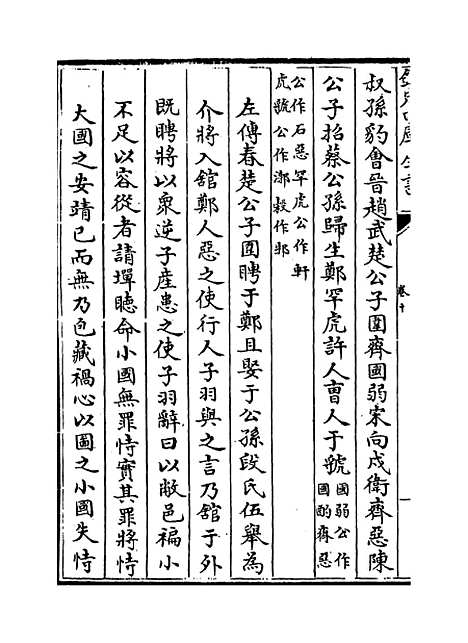 叔孫豹會晉趙武楚公子圍齊國弱宋向戌衛齊惡陳
公子招蔡公孫歸生鄭罕虎許人曹人于虢國弱公作國酌齊惡
公作石惡罕虎公作軒
虎虢公作漷穀作郭
左傳春楚公子圍聘于鄭且娶于公孫段氏伍舉為
介將入舘鄭人惡之使行人子羽與之言乃舘于外
既聘將以衆逆子產患之使子羽辭曰以敝邑褊小
不足以容從者請墠聽命小國無罪恃實其罪將恃
大國之安靖已而無乃包藏禍心以圖之小國失恃
卷十